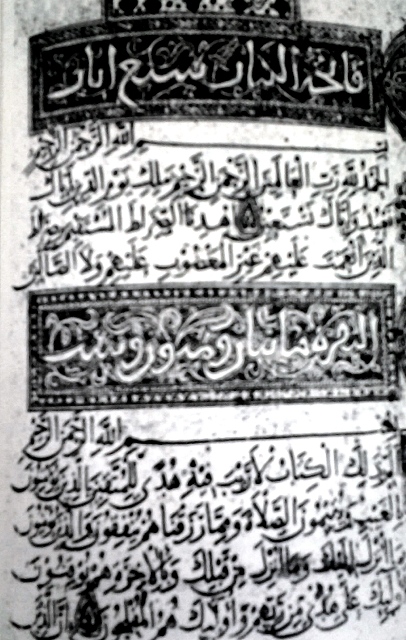 فاتحة الكتاب سبع ايات
بسم الله الرحمن الرحيم
الحمد لله رب العالمين الرحمن الرحيم ملك يوم الدين اياك
نعبد واياك نستعين اهدنا الصراط المستقيم صراط
الذين انعمت عليهم غير المغضوب عليهم ولا الضالين
البقرة مائتان وثمانون وست
بسم الله الرحمن الرحيم
الم ذلك الكتاب لا ريب فيه هدى للمتقين الذين يؤمنون
بالغيب ويقيمون الصلاة ومما رزقناهم ينفقون والذين يؤمنون
بما انزل اليك وما انزل من قبلك وبالاخرة هم يوقنون
اوليك على هدى من ربهم واوليك هم المفلحون ان الذين